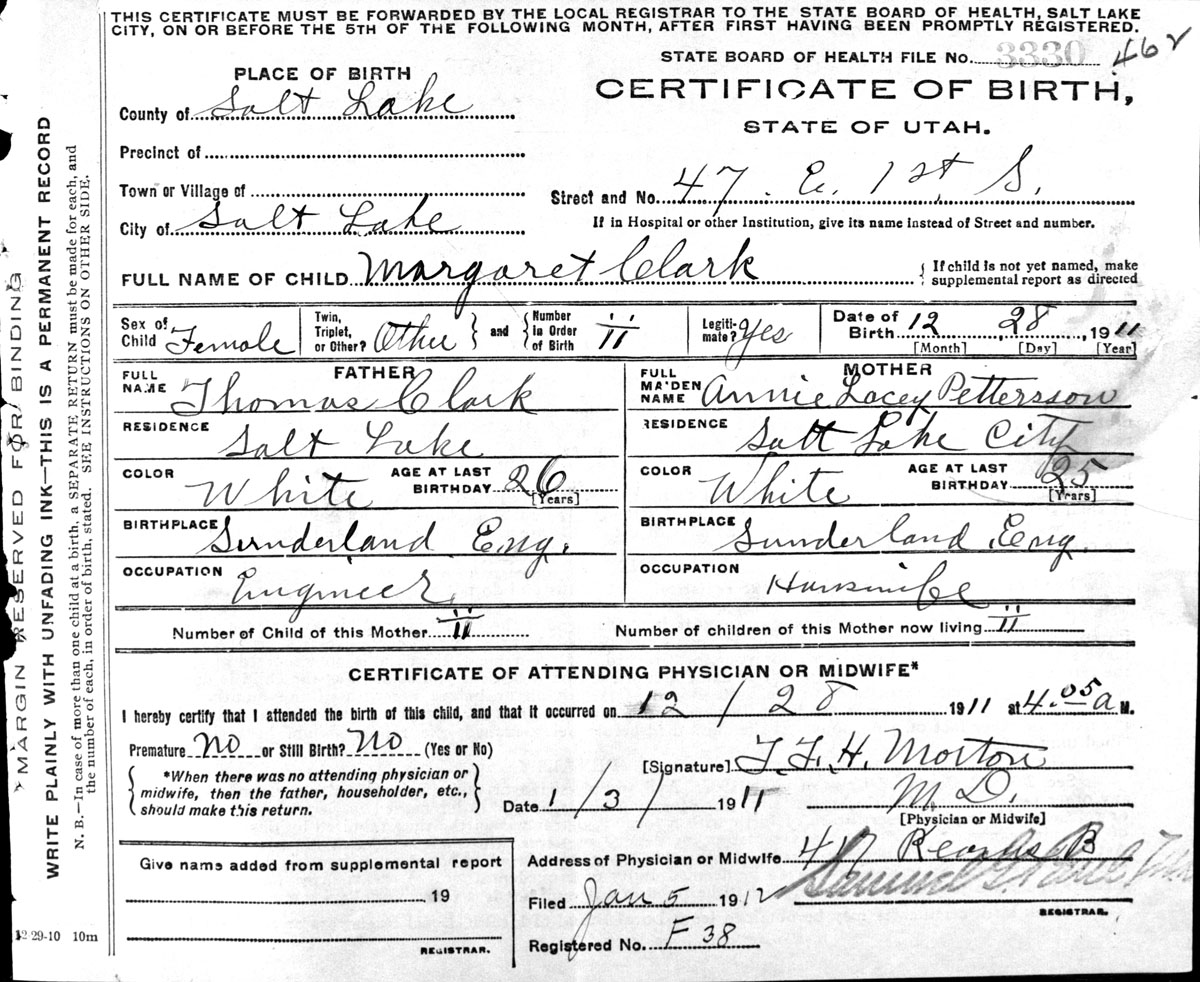 THIS CERTIFICATE MUST BE FORWARDED BY THE LOCAL REGISTRAR TO THE STATE BOARD OF HEALTH, SALT LAKE
CITY, ON OR BEFORE THE 5TH OF THE FOLLOWING MONTH, AFTER FIRST HAVING BEEN PROMPTLY REGISTERED.
STATE BOARD OF HEALTH FILE No. 3330 462
PLACE OF BIRTH
CERTIFICATE OF BIRTH,
STATE OF UTAH.
County of Salt Lake
Precinct of
Town or Village of
Street and No. 47. E. 1st S.
City of Salt Lake
If in Hospital or other Institution, give its name instead of Street and number.
FULL NAME OF CHILD Margaret Clark
If child is not yet named, make
supplemental report as directed
Sex of Child Female
Twin, Triplet, or Other? Other and Number in Order of Birth 11
Legiti-mate? Yes
Date of Birth 12 28, 1911
[Month] [Day] [Year]
FATHER
MOTHER
FULL NAME Thomas Clark
FULL MA'DEN NAME Annie Lacey Pettersson
RESIDENCE Salt Lake
RESIDENCE Salt Lake City
COLOR White AGE AT LAST BIRTHDAY 26 [Years]
COLOR White AGE AT LAST BIRTHDAY 25 [Years]
BIRTHPLACE Sunderland Eng.
BIRTHPLACE Sunderland, Eng.
OCCUPATION Engineer
OCCUPATION Housewife
Number of Child of this Mother 11
Number of children of this Mother now living 11
CERTIFICATE OF ATTENDING PHYSICIAN OR MIDWIFE*
I hereby certify that I attended the birth of this child, and that it occurred on 12 / 28 1911 at 4.05 a M.
Premature No or Still Birth? No (Yes or No)
*When there was no attending physician or
midwife, then the father, householder, etc.,
should make this return.
[Signature] T. F. H. Morton
M. D.
[Physician or Midwife]
Date 1/3/ 1911
Give name added from supplemental report
19
REGISTRAR.
Address of Physician or Midwife 417 Kearns B
Filed Jan 5 1912
Samuel
REGISTRAR.
Registered No. F 38
MARGIN RESERVED FOR BINDING
WRITE PLAINLY WITH UNFADING INK—THIS IS A PERMANENT RECORD
N. B.—In case of more than one child at a birth, a SEPARATE RETURN must be made for each, and
the number of each, in order of birth, stated. SEE INSTRUCTIONS ON OTHER SIDE.
12 29-10 10m